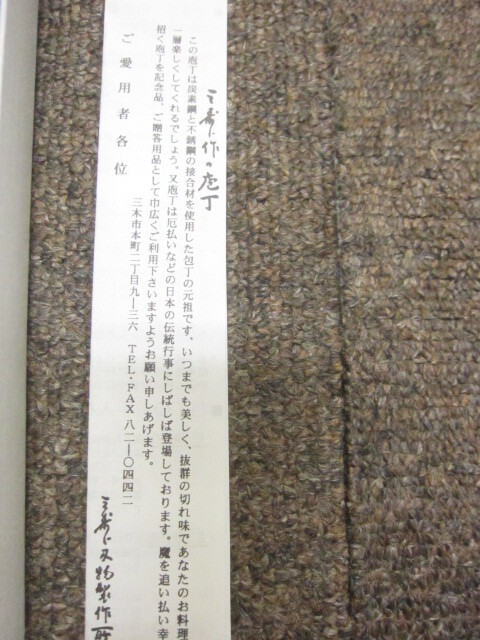 三寿ゞ作の庖丁
この庖丁は炭素鋼と不銹鋼の接合材を使用した包丁の元祖です、いつまでも美しく、抜群の切れ味であなたのお料理
一層楽しくしてくれるでしょう。又庖丁は厄払いなどの日本の伝統行事にしばしば登場しております。魔を追い払い幸
招く庖丁を記念品、ご贈答用品として巾広くご利用下さいますようお願い申しあげます。
ご愛用者各位
三木市本町二丁目九ー三六 TEL・FAX 八二ー〇四四二
三寿ゞ刃物製作所